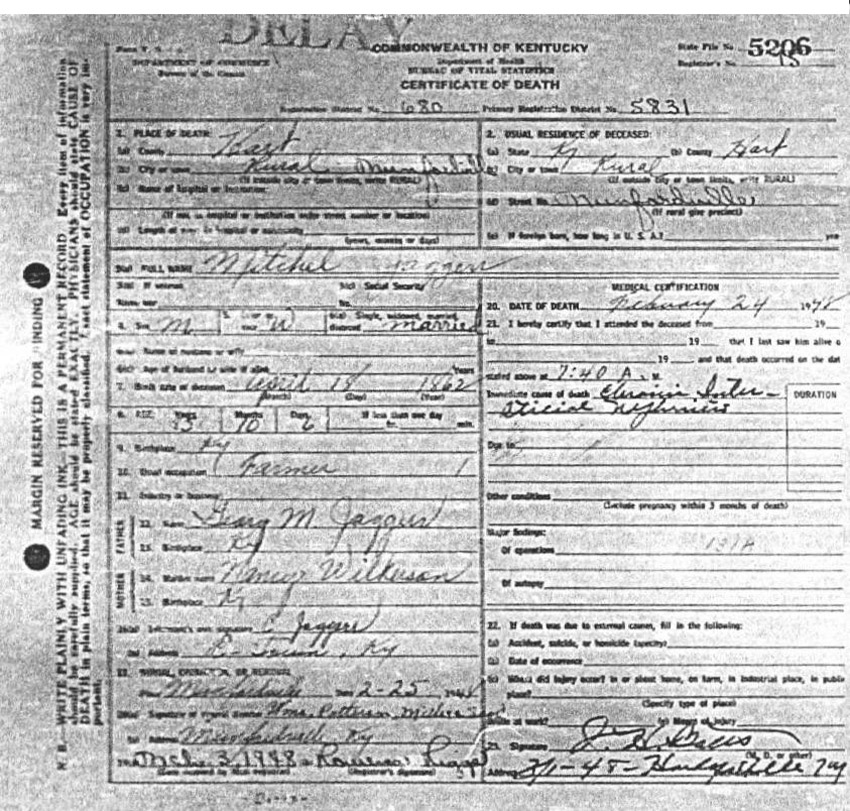 DELAY
COMMONWEALTH OF KENTUCKY
State File No. 5206
DEPARTMENT OF COMMERCE
Department of Health
Registrar's No. 18
Bureau of the Census
BUREAU OF VITAL STATISTICS
CERTIFICATE OF DEATH
Registration District No. 680 Primary Registration District No. 5831
MARGIN RESERVED FOR BINDING
N. B.—WRITE PLAINLY WITH UNFADING INK—THIS IS A PERMANENT RECORD. Every item of information
should be carefully supplied. AGE should be stated EXACTLY. PHYSICIANS should state CAUSE OF
DEATH in plain terms, so that it may be properly classified. Exact statement of OCCUPATION is very im-
portant.
1. PLACE OF DEATH:
(a) County Hart
(b) City or town Rural Munfordville
(If outside city or town limits, write RURAL)
(c) Name of hospital or institution:
(If not in hospital or institution write street number or location)
(d) Length of stay in hospital or community
(years, months or days)
2. USUAL RESIDENCE OF DECEASED:
(a) State Ky (b) County Hart
(c) City or town Rural
(If outside city or town limits, write RURAL)
(d) Street No. Munfordville
(If rural give precinct)
(e) If foreign born, how long in U. S. A.? yrs
3(a) FULL NAME Mitchel Jaggers
3(b) If veteran, 3(c) Social Security
Name war No.
4. Sex M 5. Color or race W 6(a) Single, widowed, married, divorced married
6(b) Name of husband or wife
6(c) Age of husband or wife if alive Years
7. Birth date of deceased April 18 1862
(Month) (Day) (Year)
8. AGE: Years Months Days If less than one day
85 10 6 hr. min.
9. Birthplace Ky
10. Usual occupation Farmer
11. Industry or business
FATHER
12. Name Georg M Jaggers
13. Birthplace Ky
MOTHER
14. Maiden name Nancy Wilkerson
15. Birthplace Ky
16(a) Informant's own signature C Jaggers
(b) Address E-Town, Ky
17. BURIAL, CREMATION, OR REMOVAL
Place Munfordville Date 2-25, 1948
(b) Address Munfordville, Ky
Mch 3, 1948
(Date received by local registrar) (Registrar's signature)
MEDICAL CERTIFICATION
20. DATE OF DEATH February 24 1948
21. I hereby certify that I attended the deceased from 19
to 19 that I last saw him alive o
19 and that death occurred on the dat
stated above at 7:40 A. M.
Immediate cause of death Chronic Inter-
sticial Nephritis
DURATION
Due to
Other conditions
(Include pregnancy within 3 months of death)
Major findings:
Of operations 131A
Of autopsy
22. If death was due to external causes, fill in the following:
(a) Accident, suicide, or homicide (specify)
(b) Date of occurrence
(c) Where did injury occur? in or about home, on farm, in industrial place, in public
place?
(Specify type of place)
While at work? (e) Means of injury
23. Signature
(M. D. or other)
Address 3/1-48- Hodgenville Ky